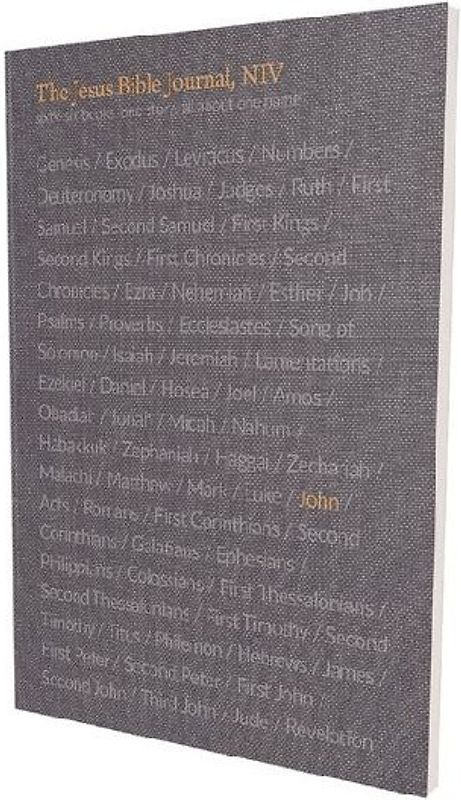 The Jesus Bible Journal, NIV
sixty-six books. one story. all about one name.
Genesis / Exodus / Leviticus / Numbers /
Deuteronomy / Joshua / Judges / Ruth / First
Samuel / Second Samuel / First Kings /
Second Kings / First Chronicles / Second
Chronicles / Ezra / Nehemiah / Esther / Job /
Psalms / Proverbs / Ecclesiastes / Song of
Solomon / Isaiah / Jeremiah / Lamentations /
Ezekiel / Daniel / Hosea / Joel / Amos /
Obadiah / Jonah / Micah / Nahum /
Habakkuk / Zephaniah / Haggai / Zechariah /
Malachi / Matthew / Mark / Luke / John /
Acts / Romans / First Corinthians / Second
Corinthians / Galatians / Ephesians /
Philippians / Colossians / First Thessalonians /
Second Thessalonians / First Timothy / Second
Timothy / Titus / Philemon / Hebrews / James /
First Peter / Second Peter / First John /
Second John / Third John / Jude / Revelation